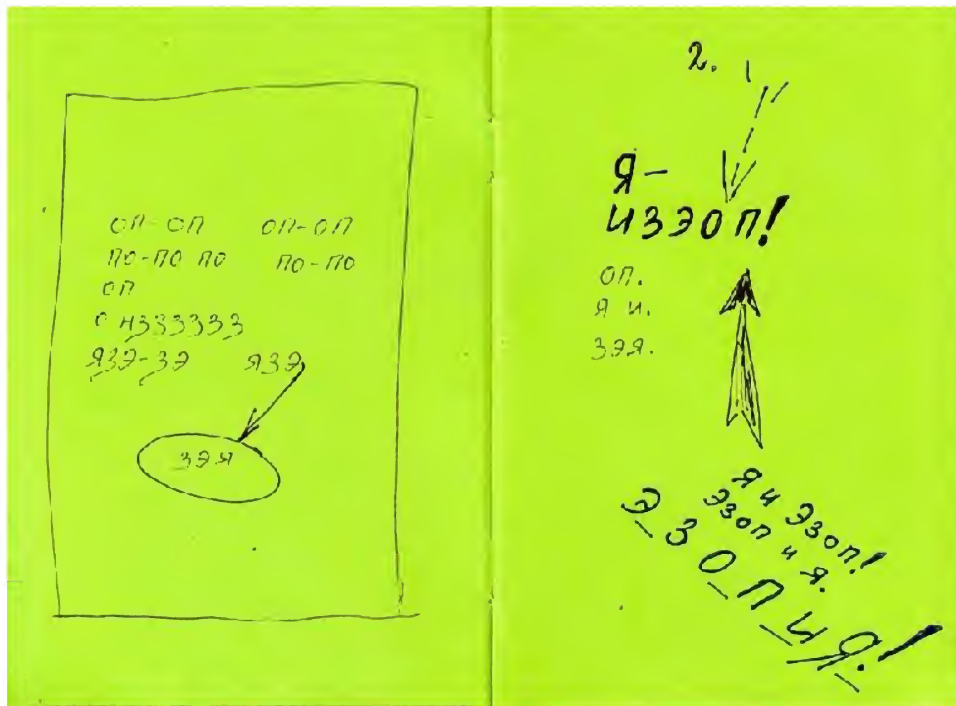 ОП-ОП ОП-ОП
ПО-ПО ПО ПО-ПО
ОП
О ИЗЗЗЗЗЗ
ЯЗЭ-ЗЭ ЯЗЭ
ЗЭЯ
2.
Я-
ИЗЭОП!
ОП.
Я И.
ЗЭЯ.
Я И ЭЗОП!
ЭЗОП И Я.
ЭЗОПИЯ!